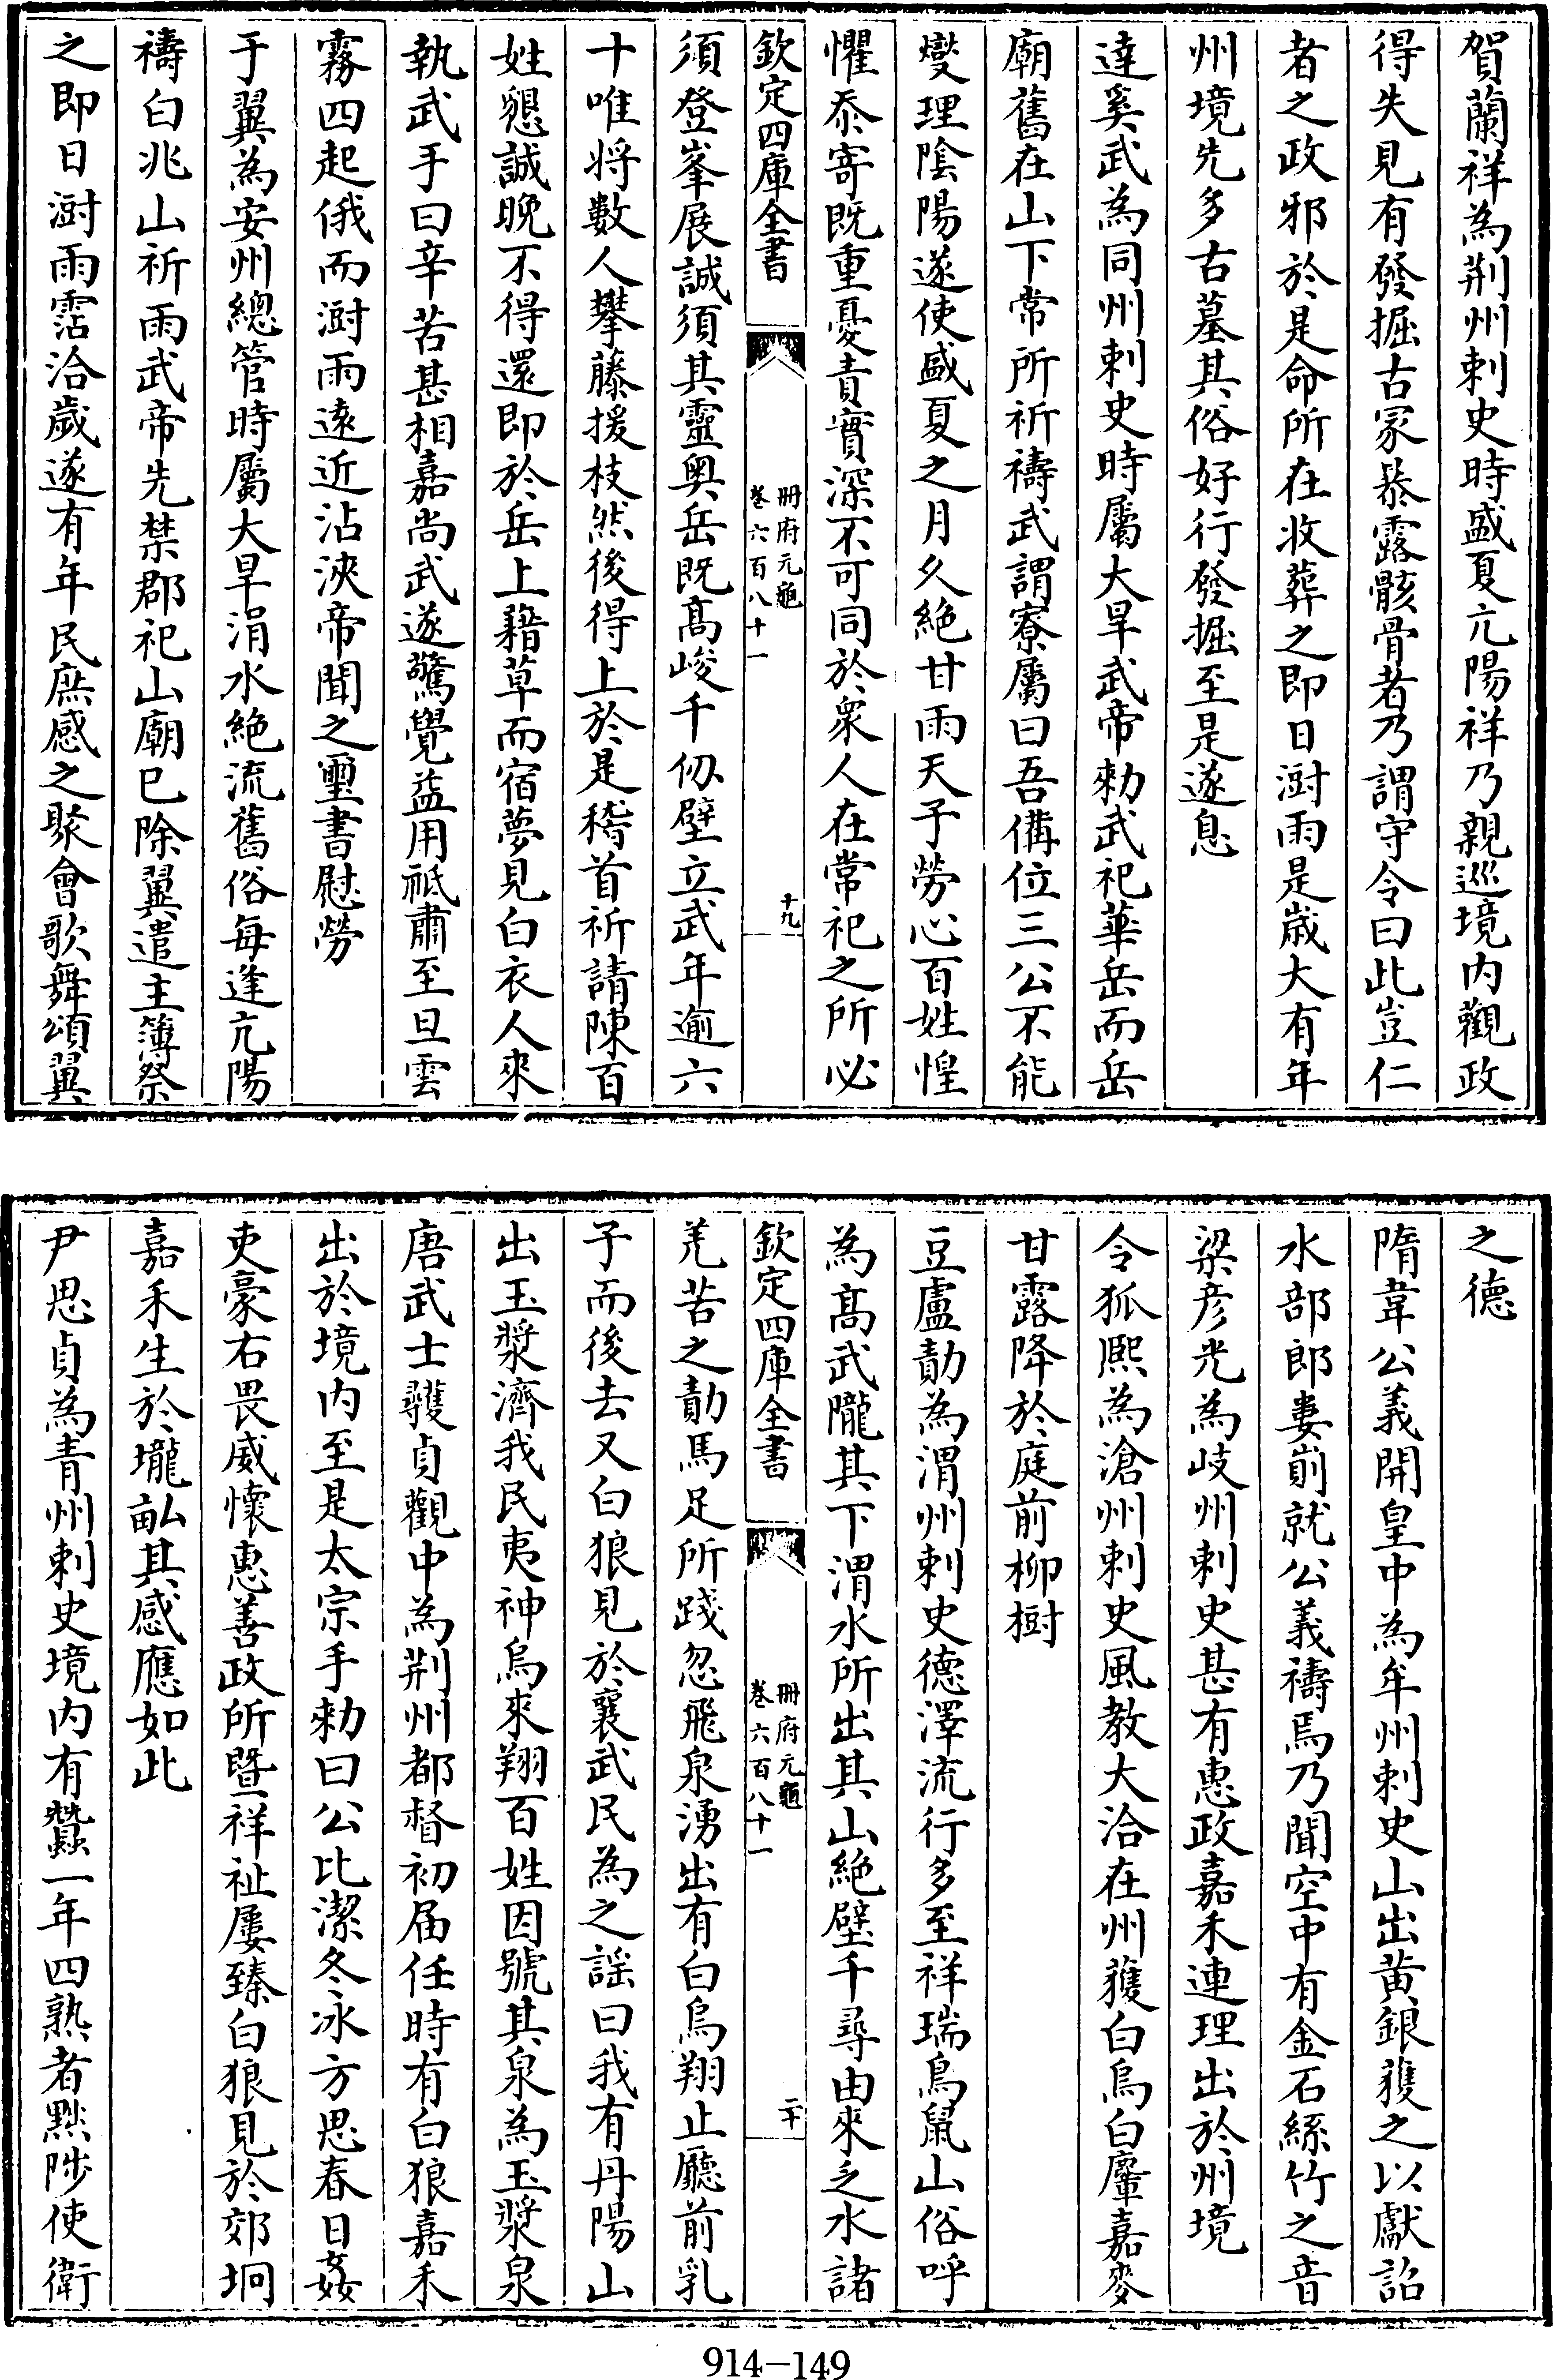 賀蘭祥為荆州刺史時盛夏亢陽祥乃親巡境内觀政
得失見有發掘古冡暴露骸骨者乃謂守令曰此豈仁
者之政邪於是命所在收葬之即日澍雨是歳大有年
州境先多古墓其俗好行發掘至是遂息
達奚武為同州刺史時屬大旱武帝勅武祀華岳而岳
廟舊在山下常所祈禱武謂寮屬曰吾備位三公不能
燮理隂陽遂使盛夏之月久絶甘雨天子勞心百姓惶
懼忝寄既重憂責實深不可同於衆人在常祀之所必
欽定四庫全書
冊府元龜
卷六百八十一
十九
須登峯展誠須其靈奥岳既髙峻千仭壁立武年逾六
十唯將數人攀藤援枝然後得上於是稽首祈請陳百
姓懇誠晚不得還即於岳上藉草而宿夢見白衣人來
執武手曰辛苦甚相嘉尚武遂驚覺益用祗肅至旦雲
霧四起俄而澍雨逺近沾浹帝聞之璽書慰勞
于翼為安州總管時屬大旱涓水絶流舊俗每逢亢陽
禱白兆山祈雨武帝先禁郡祀山廟已除翼遣主簿祭
之即日澍雨霑洽歲遂有年民庶感之聚會歌舞頌翼
之德
隋韋公義開皇中為牟州刺史山出黄銀獲之以獻詔
水部郎婁崱就公義禱焉乃聞空中有金石絲竹之音
梁彦光為岐州刺史甚有惠政嘉禾連理出於州境
令狐熙為滄州刺史風教大洽在州獲白烏白麞嘉麥
甘露降於庭前柳樹
豆盧勣為渭州刺史德澤流行多至祥瑞鳥鼠山俗呼
為髙武隴其下渭水所出其山絶壁千尋由來乏水諸
欽定四庫全書
冊府元龜
卷六百八十一
二十
羌苦之勣馬足所踐忽飛泉湧出有白烏翔止廳前乳
子而後去又白狼見於襄武民為之謡曰我有丹陽山
出玉漿濟我民夷神烏來翔百姓因號其泉為玉漿泉
唐武士彠貞觀中為荆州都督初届任時有白狼嘉禾
出於境内至是太宗手勅曰公比潔冬冰方思春日姦
吏豪右畏威懷惠善政所暨祥祉屢臻白狼見於郊坰
嘉禾生於壠畝其感應如此
尹思貞為青州刺史境内有蠶一年四熟者黜陟使衛
914-149